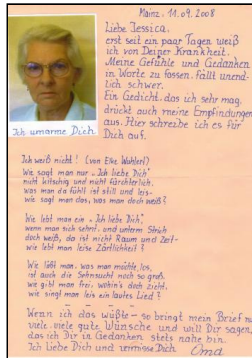 Mainz, 11.09.2008
Liebe Jessica,
erst seit ein paar Tagen weiß
ich von Deiner Krankheit.
Meine Gefühle und Gedanken
in Worte zu fassen, fällt unend-
lich schwer.
Ein Gedicht, das ich sehr mag,
drückt auch meine Empfindungen
aus. Hier schreibe ich es für
Dich auf.
Ich umarme Dich
Ich weiß nicht! (von Elke Wahlert)
Wie sagt man nur „Ich liebe Dich",
nicht kitschig und nicht fürchterlich,
was man da fühlt ist still und leis-
wie sagt man das, was man doch weiß?
Wie lebt man ein „Ich liebe Dich",
wenn man sich sehnt, und unterm Strich
doch weiß, da ist nicht Raum und Zeit-
wie lebt man leise Zärtlichkeit?
Wie läßt man, was man möchte, los,
ist auch die Sehnsucht noch so groß,
wie gibt man frei, wohin's doch zieht,
wie singt man leis ein lautes Lied?
Wenn ich das wüßte - so bringt mein Brief nur
viele, viele gute Wünsche und will Dir sagen,
das ich Dir in Gedanken stets nahe bin.
Ich liebe Dich und vermisse Dich. Oma